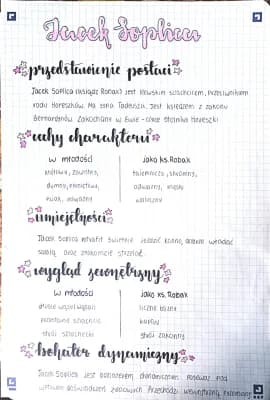 Jacek Soplica
przedstawienie postaci
Jacek Soplica (ksiądz Robak) jest litewskim szlachcicem, przeciwnikiem
rodu Horeszków. Ma syna Tadeusza. Jest księdzem z zakonu
Bernardynów. Zakochany w Ewie - córce Stolnika Horeszki
cechy charakteru
w młodości
jako ks. Robak
kłótliwy, zawzięty,
tajemniczy, skromny,
dumny,
odważny, mądry
odważny
waleczny
umiejętności
Jacek Soplica potrafił świetnie jeździć konno, dobrze władać
szablą oraz znakomicie strzelać.
wygląd zewnętrzny
w młodości
jako ks. Robak
długie wąsy
liczne blizny
szlachcic
kaptur
strój szlachecki
strój zakonny
bohater dynamiczny
Jacek Soplica jest bohaterem dynamicznym, ponieważ pod
wpływem doświadczeń życiowych przechodzi wewnętrzną przemianę